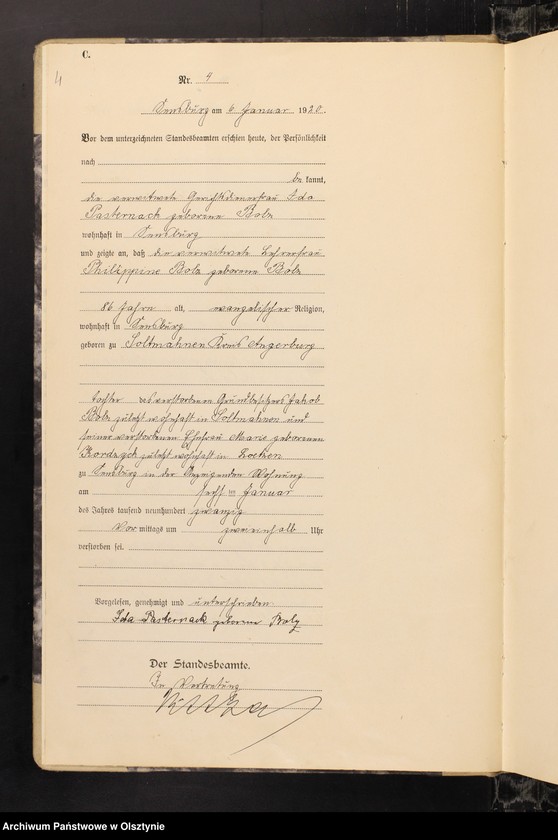 C.
4
Nr. 4
Sensburg am 6. Januar 1920.
Vor dem unterzeichneten Standesbeamten erschien heute, der Persönlichkeit
nach
be kannt,
die verwitwete Gerichtsdienerfrau Ida
Pasternack geborene Bolz
wohnhaft in Sensburg
und zeigte an, daß die verwitwete Lehrerfrau
Philippine Bolz geborene Bolz
86 Jahre alt, evangelischer Religion,
wohnhaft in Sensburg
geboren zu Soltmahnen Kreis Angerburg
Tochter des verstorbenen Grundbesitzers Jakob
Bolz zuletzt wohnhaft in Soltmahnen und
seiner verstorbenen Ehefrau Marie geborenen
zuletzt wohnhaft in
zu Sensburg in der Wohnung
am sechsten Januar
des Jahres tausend neunhundert zwanzig
Vor mittags um zweieinhalb Uhr
verstorben sei.
Vorgelesen, genehmigt und unterschrieben
Ida Pasternack geborene Bolz
Der Standesbeamte.
In Vertretung
Archiwum Państwowe w Olsztynie